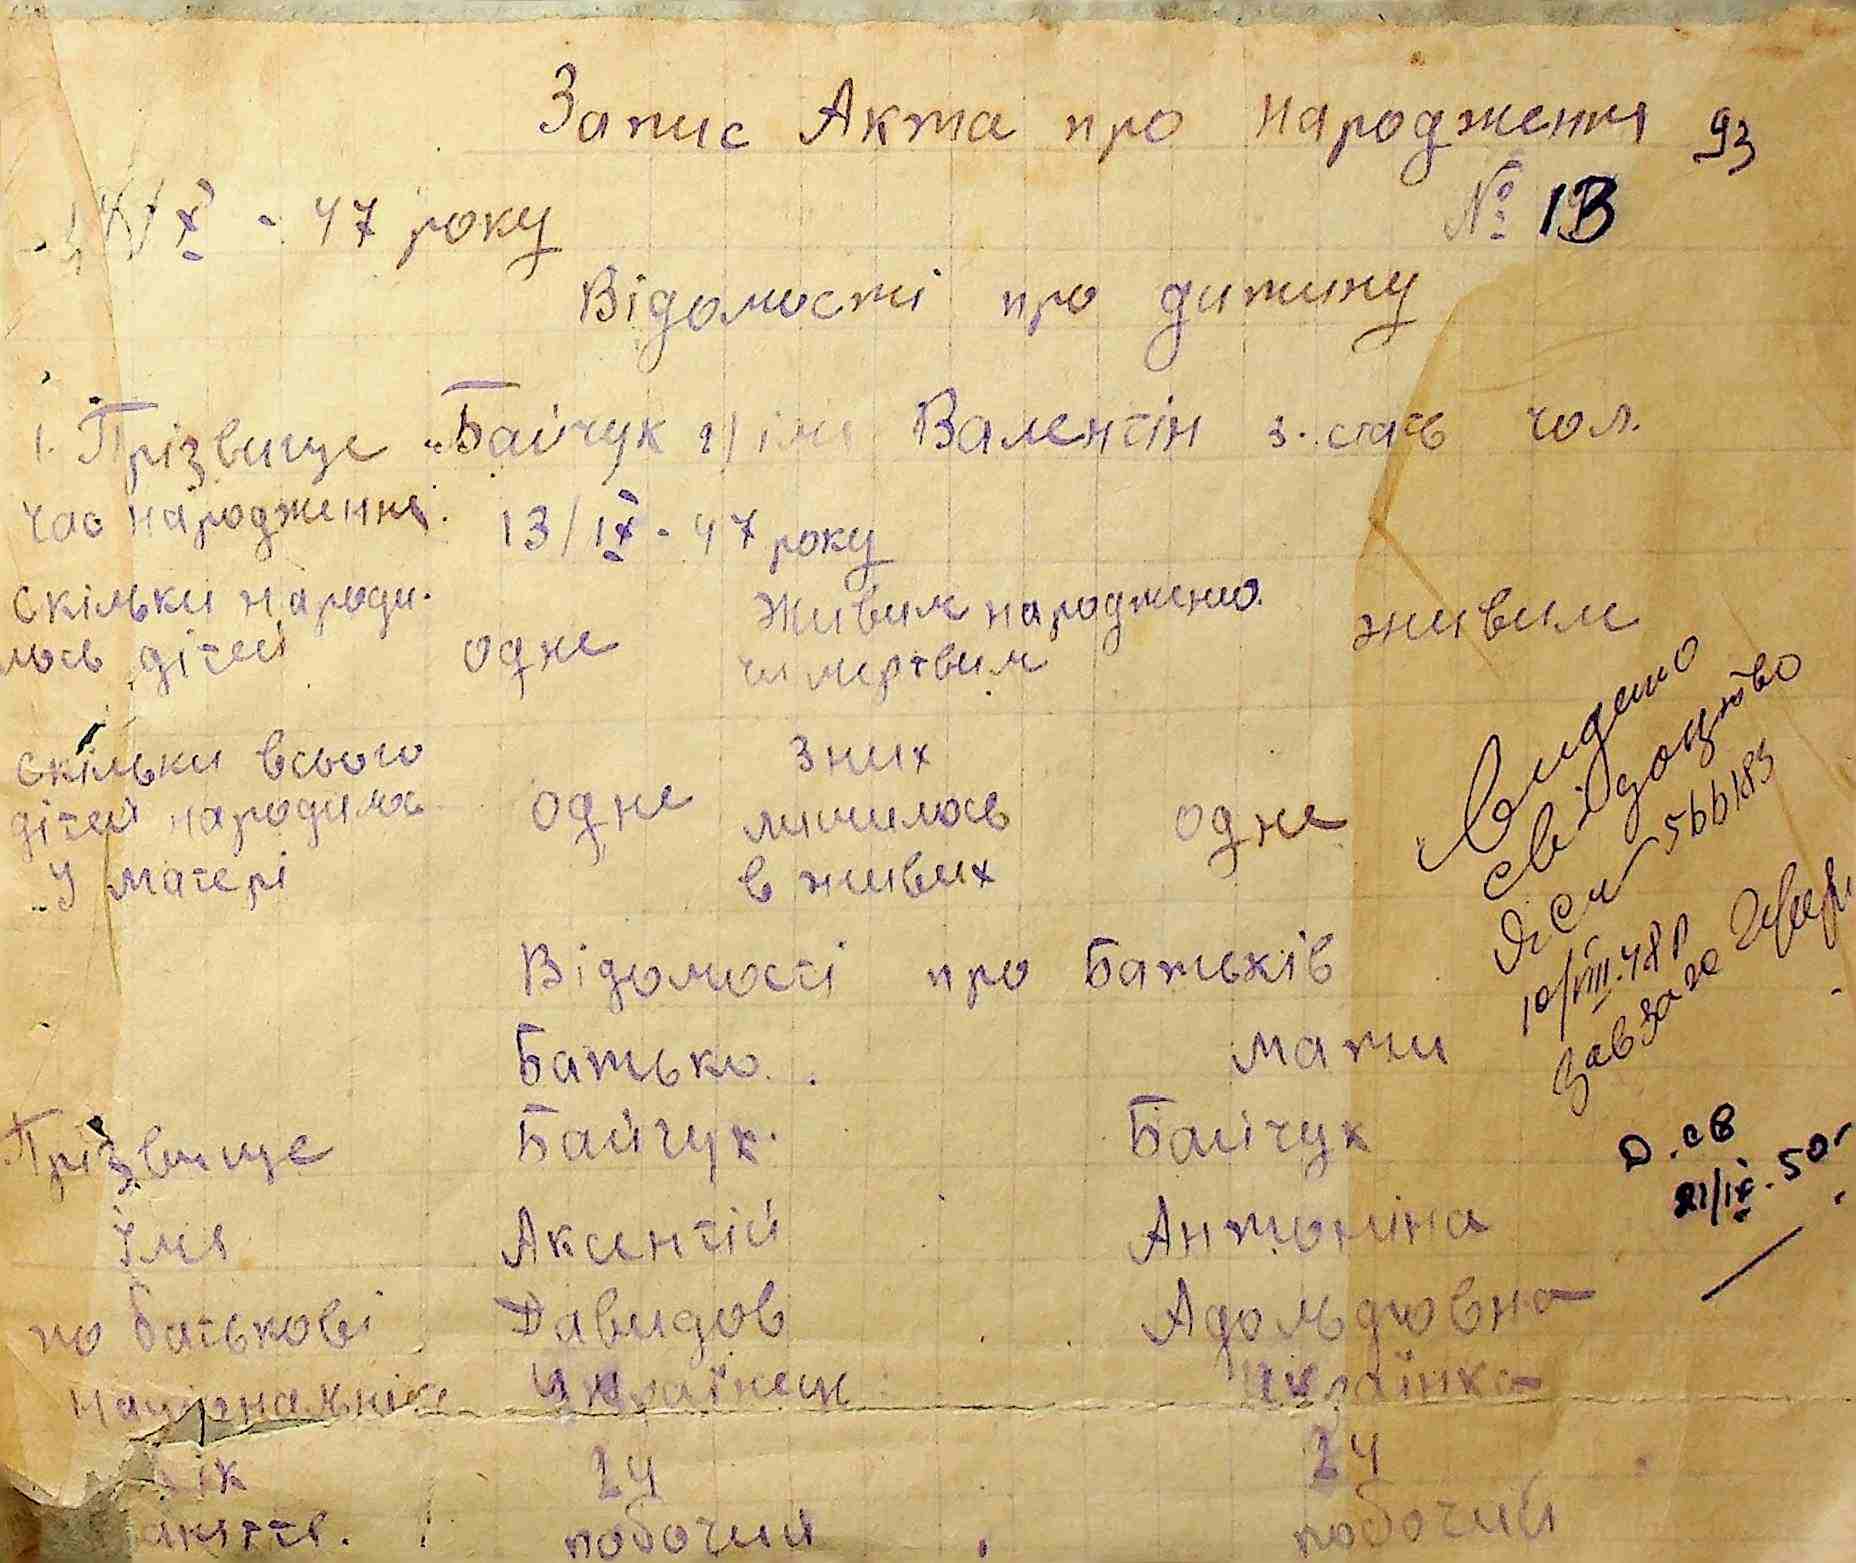 Запис Акта про народження 93
X - 47 року № 13
Відомості про дитину
1. Прізвище Байчук 2/ імя Валентін 3. стать чол.
час народження. 13/IX - 47 року
Скільки народи- одне Живим народжено живим
лось дітей чи мертвим
Скільки всього одне з них одне
дітей народилось лишилось
у матері в живих
Видано
свідоцтво
566183
10/VIII.48 р
Зав загс
Відомості про Батьків
Батько. Мати
Прізвище Байчук. Байчук
Імя Аксентій Антоніна
по батькові Давидов Адольфовна
Д. св
21/IX. 50 р
національніс Українець Українка
вік 24 24
аняття. робочий робочий